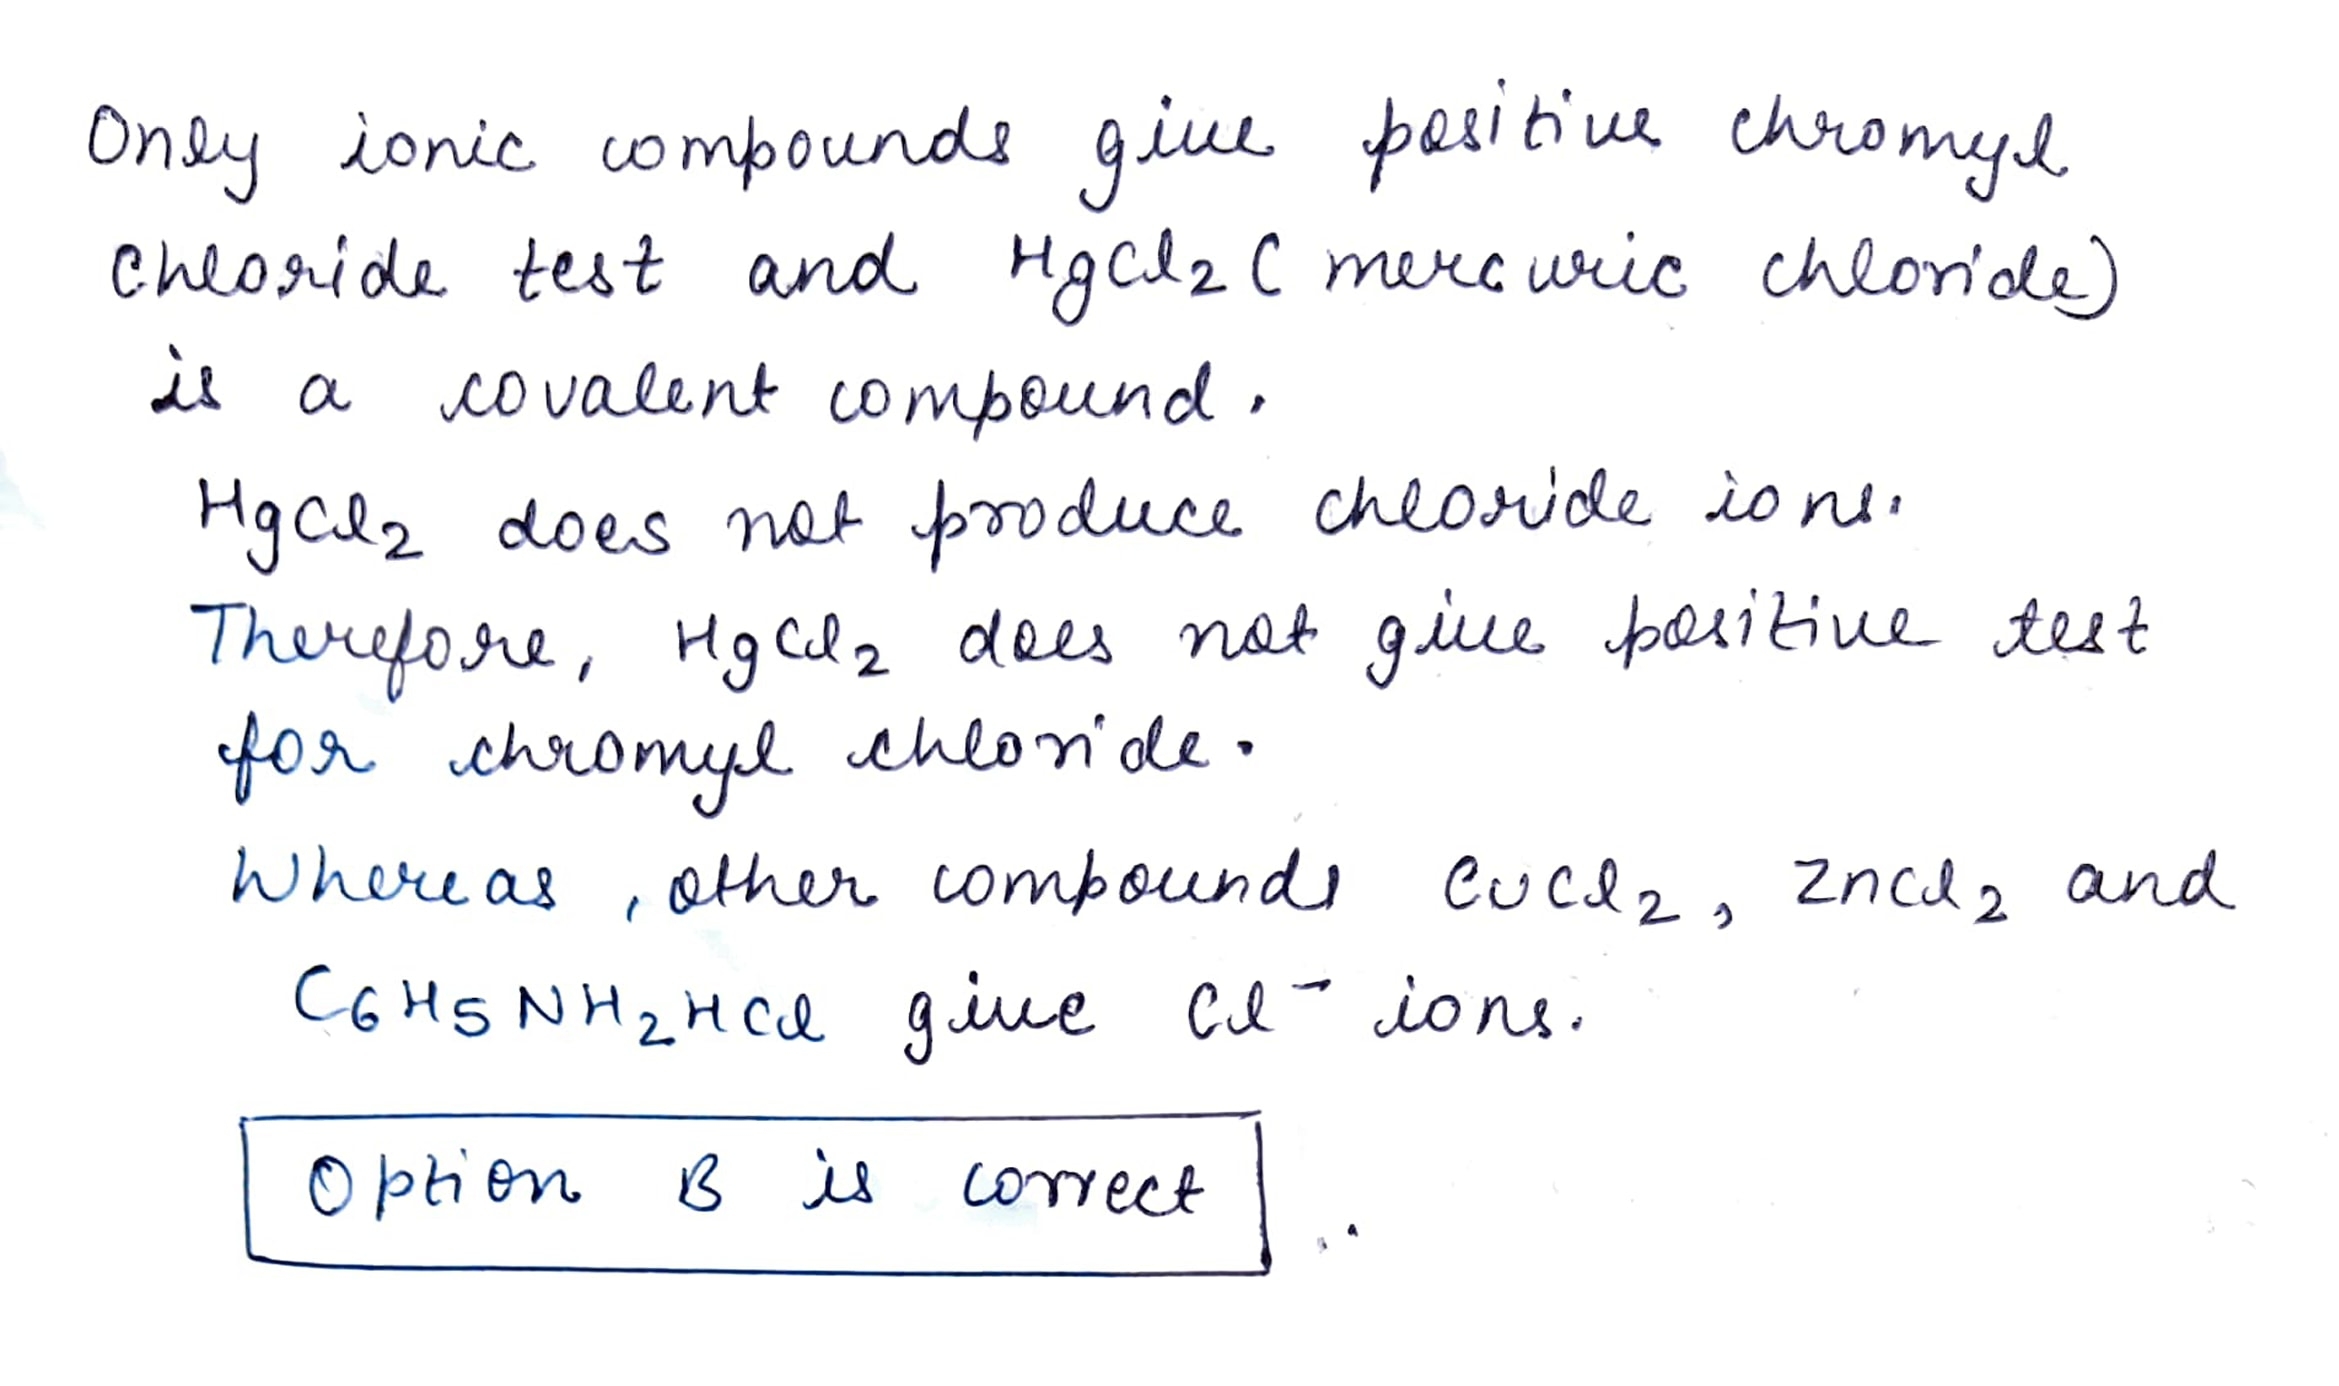 Only ionic compounds give positive chromyl
chloride test and HgCl2 ( mercuric chloride)
is a covalent compound.
HgCl2 does not produce chloride ions.
Therefore, HgCl2 does not give positive test
for chromyl chloride.
Whereas, other compounds CuCl2, ZnCl2 and
C6H5NH2HCl give Cl⁻ ions.
Option B is correct